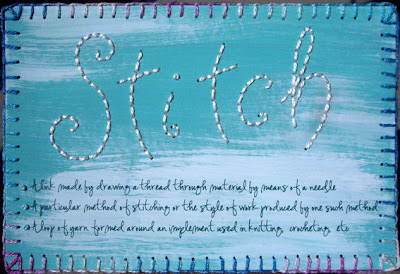 Stitch
A link made by drawing a thread through material by means of a needle
A particular method of stitching or the style of work produced by one such method
A loop of yarn formed around an implement used in knitting, crocheting, etc